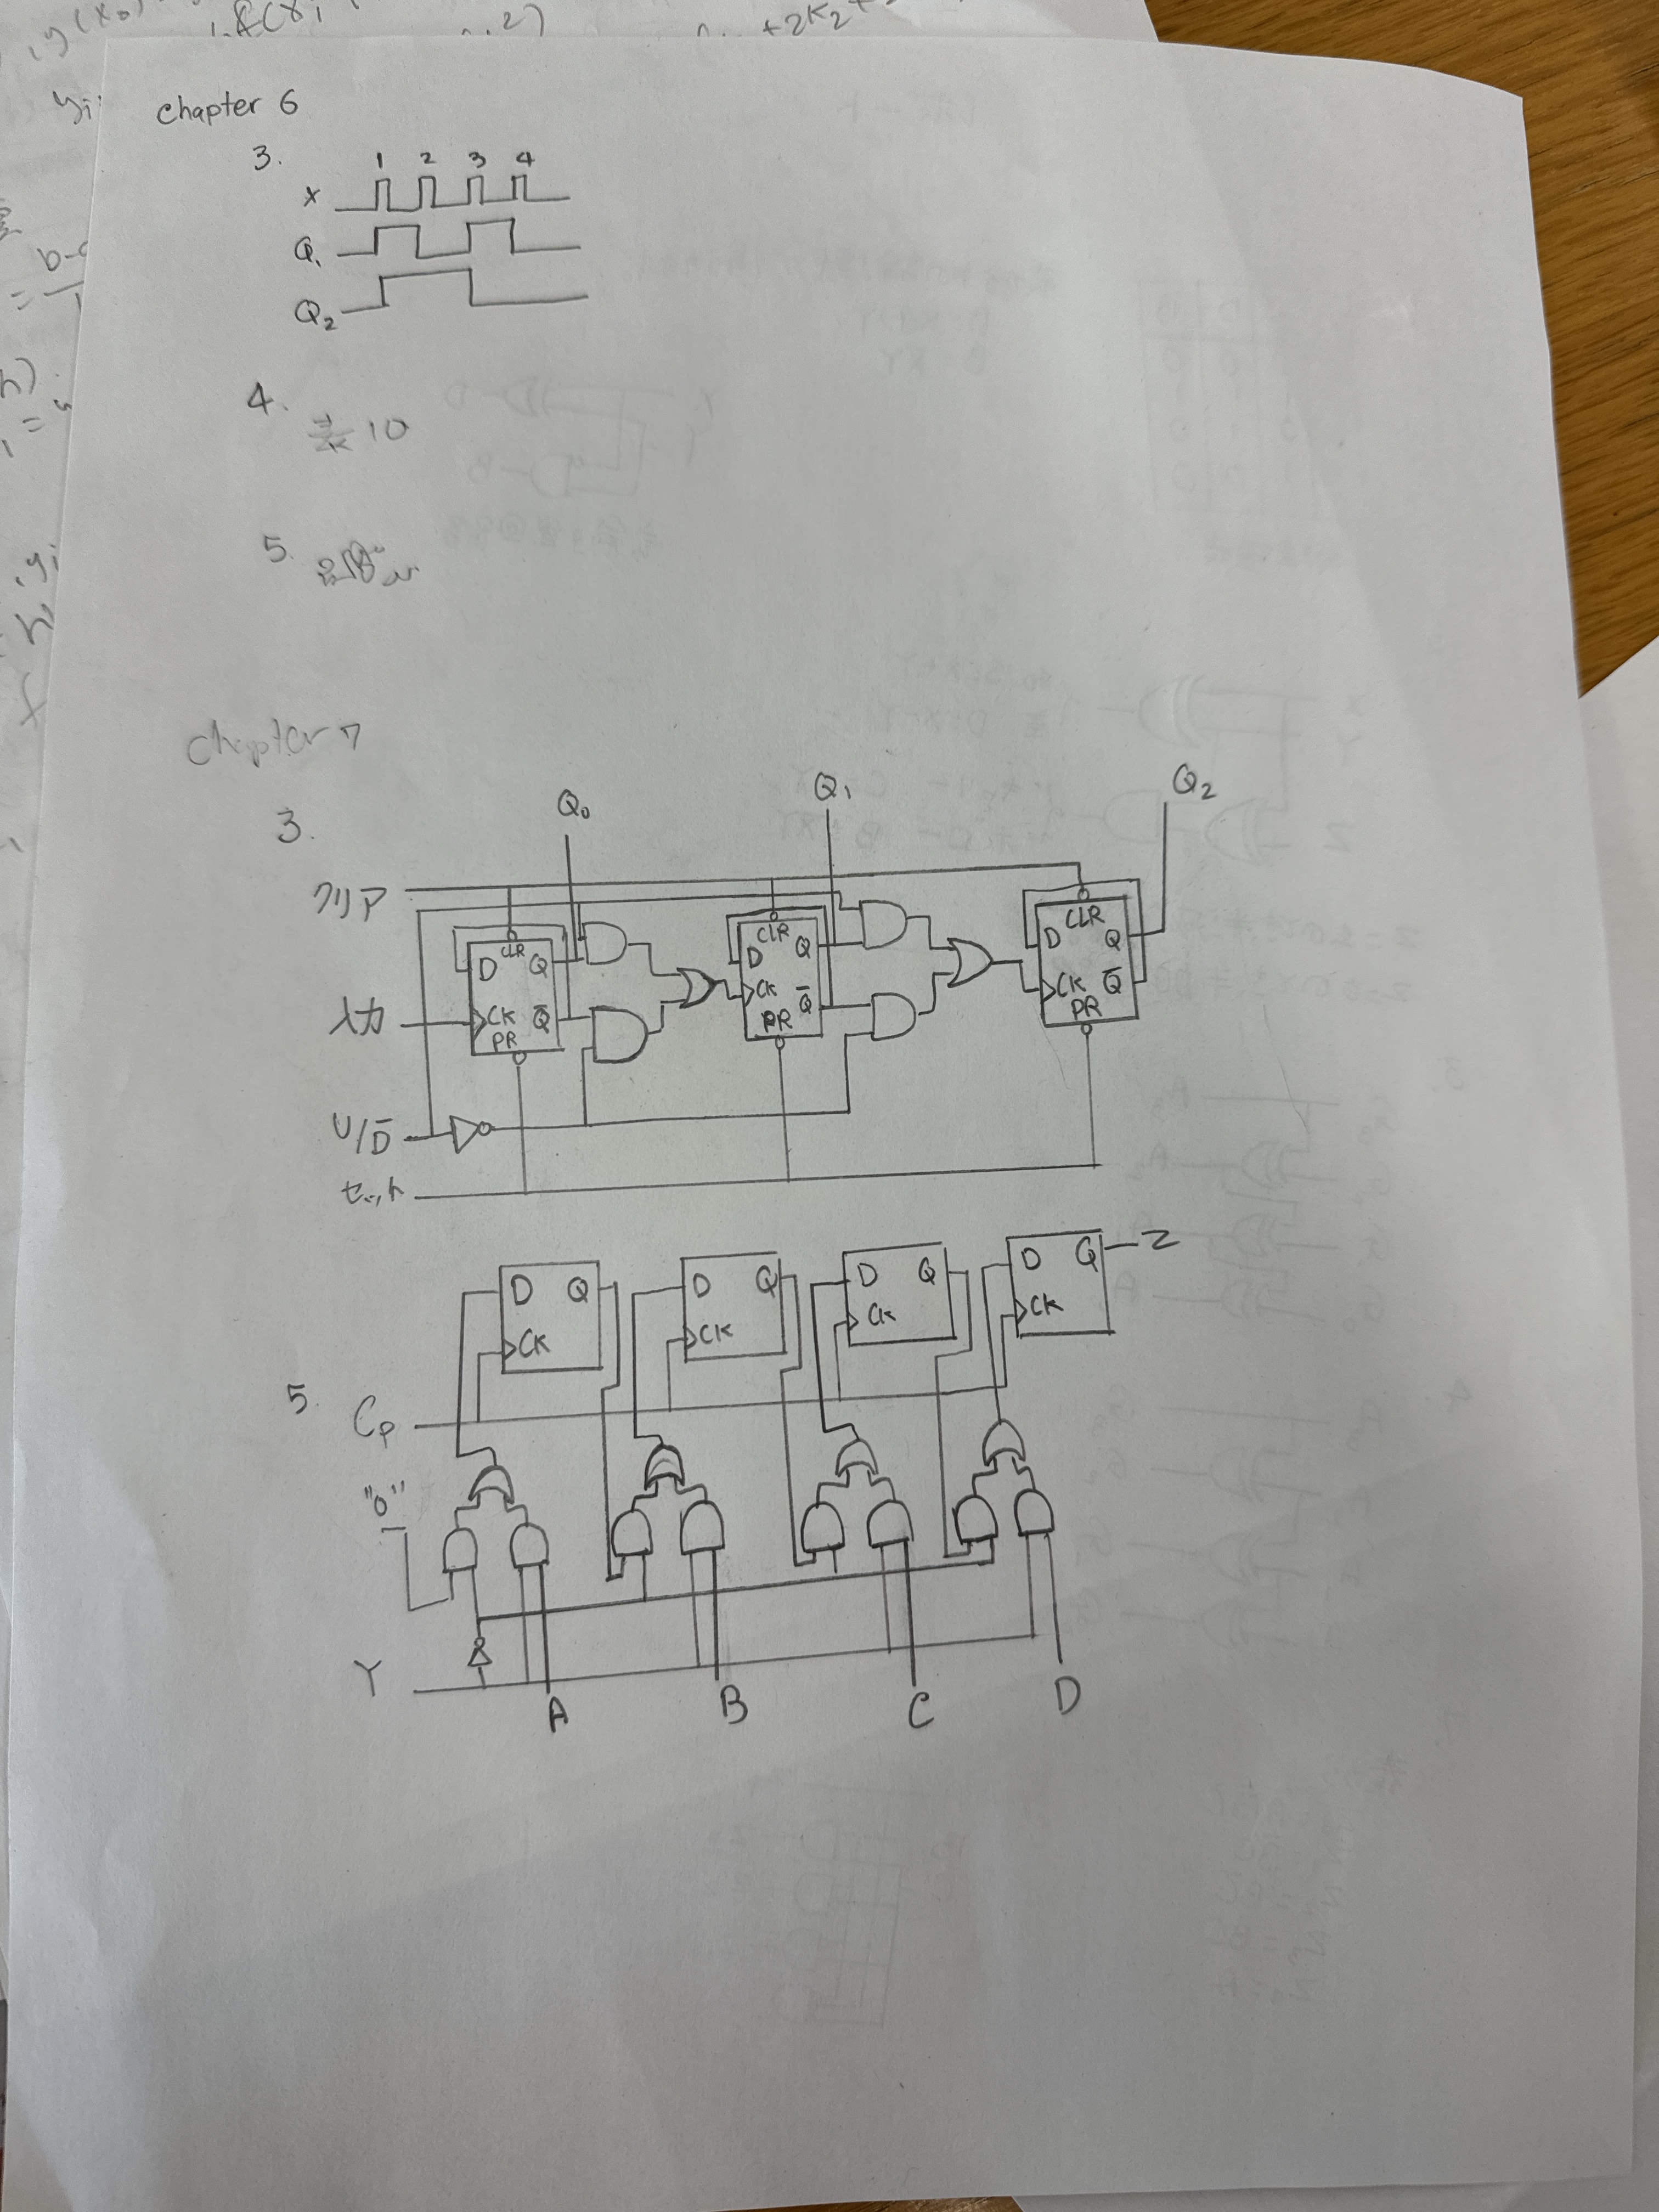 chapter 6
3.
1 2 3 4
X
Q₁
Q₂
4.
10
5.
chapter 7
3.
Q₀ Q₁ Q₂
クリア
D CLR Q
CK Q̅
PR
D CLR Q
CK Q̅
PR
D CLR Q
CK Q̅
PR
入力
U/D̅
セット
5.
D Q
CK
D Q
CK
D Q
CK
D Q Z
CK
Cp
"0"
Y
A B C D